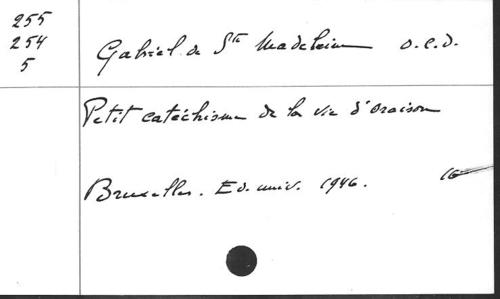 255
254
5
Gabriel de Ste Madeleine o.c.d.
Petit catéchisme de la vie d'oraison
Bruxelles. Ed. univ. 1946.
16